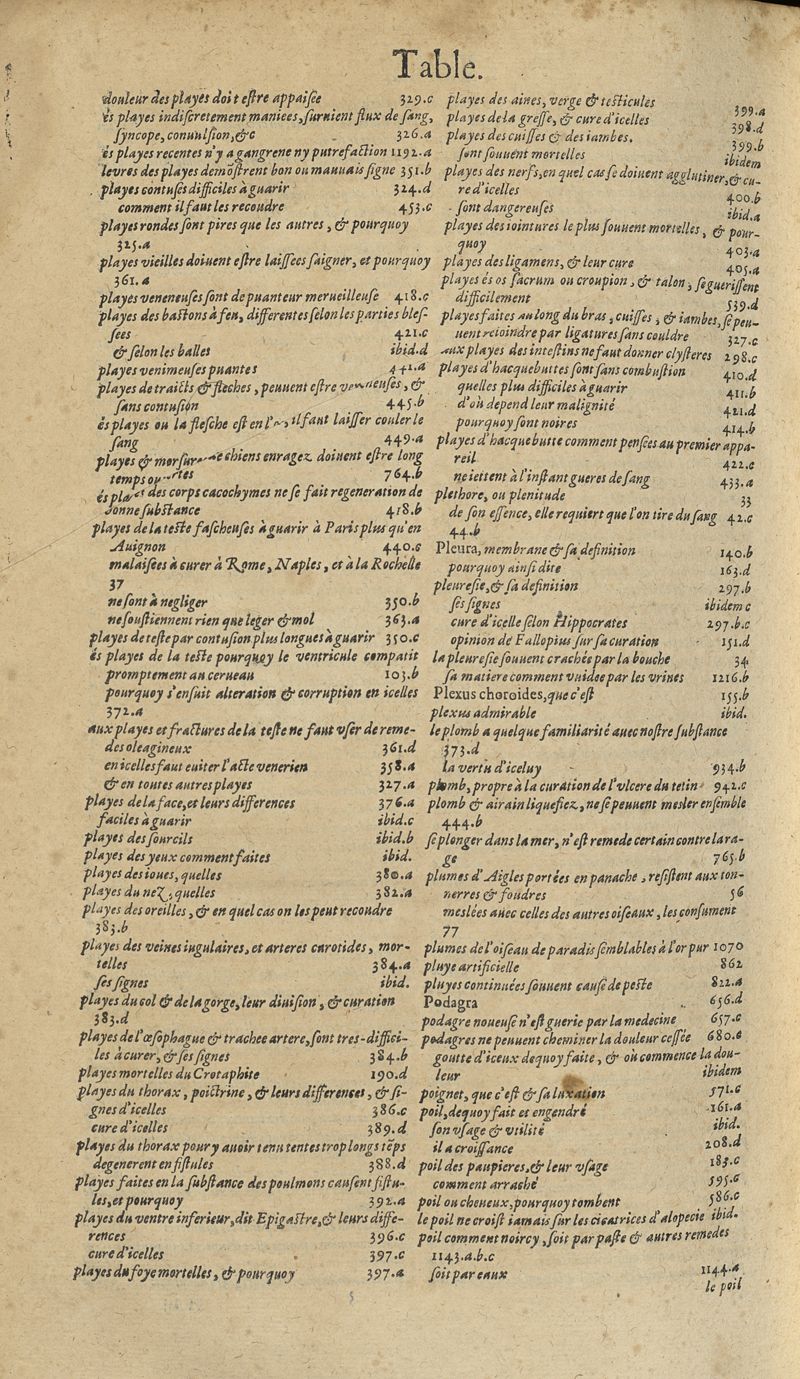 Table.
douleur des playes doit eſtre appaiſee 329.c
és playes indiſcretement maniees, ſuruient flux de ſang,
ſyncope, conuulſion, &c 326.a
és playes recentes n'y a gangrene ny putrefaction 1192.a
leures des playes demõſtrent bon ou mauuais ſigne 351.b
playes contuſes difficiles à guarir 324.d
comment il faut les recoudre 453.c
playes rondes ſont pires que les autres, & pourquoy
325.a
playes vieilles doiuent eſtre laiſſees ſaigner, et pourquoy
361.a
playes veneneuſes ſont de puanteur merueilleuſe 418.c
playes des baſtons à feu, differentes ſelon les parties bleſ-
ſees 421.c
& ſelon les balles ibid.d
playes venimeuſes puantes 441.a
playes de traicts & fleches, peuuent eſtre &
ſans contuſion 445.b
és playes ou la fleſche eſt en il faut laiſſer couler le
ſang 449.a
playes & chiens enragez doiuent eſtre long
temps 764.b
des corps cacochymes ne ſe fait regeneration de
bonne ſubſtance 418.b
playes de la teſte faſcheuſes à guarir à Paris plus qu'en
Auignon 440.c
malaiſees à curer à Rome, Naples, et à la Rochelle
37
ne ſont à negliger 350.b
ne ſouſtiennent rien que leger & mol 363.a
playes de teſte par contuſion plus longues à guarir 350.c
és playes de la teſte pourquoy le ventricule compatit
promptement au cerueau 103.b
pourquoy s'enſuit alteration & corruption en icelles
372.a
aux playes et fractures de la teſte ne faut vſer de reme-
des oleagineux 361.d
en icelles faut euiter l'acte venerien 358.a
& en toutes autres playes 327.a
playes de la face, et leurs differences 376.a
faciles à guarir ibid.c
playes des ſourcils ibid.b
playes des yeux comment faites ibid.
playes des ioues, quelles 380.a
playes du nez, quelles 382.a
playes des oreilles, & en quel cas on les peut recoudre
383.b
playes des veines iugulaires, et arteres carotides, mor-
telles 384.a
ſes ſignes ibid.
playes du col & de la gorge, leur diuiſion, & curation
383.d
playes de l'œſophague & trachee artere, ſont tres-diffici-
les à curer, & ſes ſignes 384.b
playes mortelles du Crotaphite 190.d
playes du thorax, poictrine, & leurs differences, & ſi-
gnes d'icelles 386.c
cure d'icelles 389.d
playes du thorax pour y auoir tenu tentes trop longs tẽps
degenerent en fiſtules 388.d
playes faites en la ſubſtance des poulmons cauſent fiſtu-
les, et pourquoy 392.a
playes du ventre inferieur, dit Epigaſtre, & leurs diffe-
rences 396.c
cure d'icelles 397.c
playes du foye mortelles, & pourquoy 397.a
playes des aines, verge & teſticules 399.a
playes de la greſſe, & cure d'icelles 398.d
playes des cuiſſes & des iambes. 399.b
ſont ſouuent mortelles ibidem
playes des nerfs, en quel cas ſe doiuent agglutiner, & cu-
re d'icelles 400.b
ſont dangereuſes ibid.a
playes des iointures le plus ſouuent mortelles, & pour-
quoy 403.a
playes des ligamens, & leur cure 405.a
playes és os ſacrum ou croupion, & talon, ſe gueriſſent
difficilement 539.d
playes faites au long du bras, cuiſſes, & iambes, ſe peu-
uent reioindre par ligatures ſans couldre 327.c
aux playes des inteſtins ne faut donner clyſteres 298.c
playes d'hacquebuttes ſont ſans combuſtion 410.d
quelles plus difficiles à guarir 411.b
d'où depend leur malignité 421.d
pourquoy ſont noires 414.b
playes d'hacquebutte comment penſees au premier appa-
reil 422.c
ne iettent à l'inſtant gueres de ſang 433.a
plethore, ou plenitude 33
de ſon eſſence, elle requiert que l'on tire du ſang 42.c
44.b
Pleura, membrane & ſa definition 140.b
pourquoy ainſi dite 163.d
pleureſie, & ſa definition 297.b
ſes ſignes ibidem c
cure d'icelle ſelon Hippocrates 297.b.c
opinion de Fallopius ſur ſa curation 151.d
la pleureſie ſouuent crachés par la bouche 34
ſa matiere comment vuidee par les vrines 1216.b
Plexus choroides, que c'eſt 155.b
plexus admirable ibid.
le plomb a quelque familiarité auec noſtre ſubſtance
373.d
la vertu d'iceluy 934.b
plomb, propre à la curation de l'vlcere du tetin 942.c
plomb & airain liquefiez, ne ſe peuuent meſler enſemble
444.b
ſe plonger dans la mer, n'eſt remede certain contre la ra-
ge 765.b
plumes d'Aigles portées en panache, reſiſtent aux ton-
nerres & foudres 56
meſlées auec celles des autres oiſeaux, les conſument
77
plumes de l'oiſeau de paradis ſemblables à l'or pur 1070
pluye artificielle 862
pluyes continuées ſouuent cauſe de peſte 822.a
Podagra 656.d
podagre noueuſe n'eſt guerie par la medecine 657.c
podagres ne peuuent cheminer la douleur ceſſée 680.e
goutte d'iceux dequoy faite, & où commence la dou-
leur ibidem
poignet, que c'eſt & ſa luxation 571.c
poil, dequoy fait et engendré 161.a
ſon vſage & vtilité ibid.
il a croiſſance 208.d
poil des paupieres, & leur vſage 183.c
comment arraché 595.c
poil ou cheueux, pourquoy tombent 586.c
le poil ne croiſt iamais ſur les cicatrices d'alopecie ibid.
poil comment noircy, ſoit par paſte & autres remedes
1143.a.b.c
ſoit par eaux 1144.a
le poil